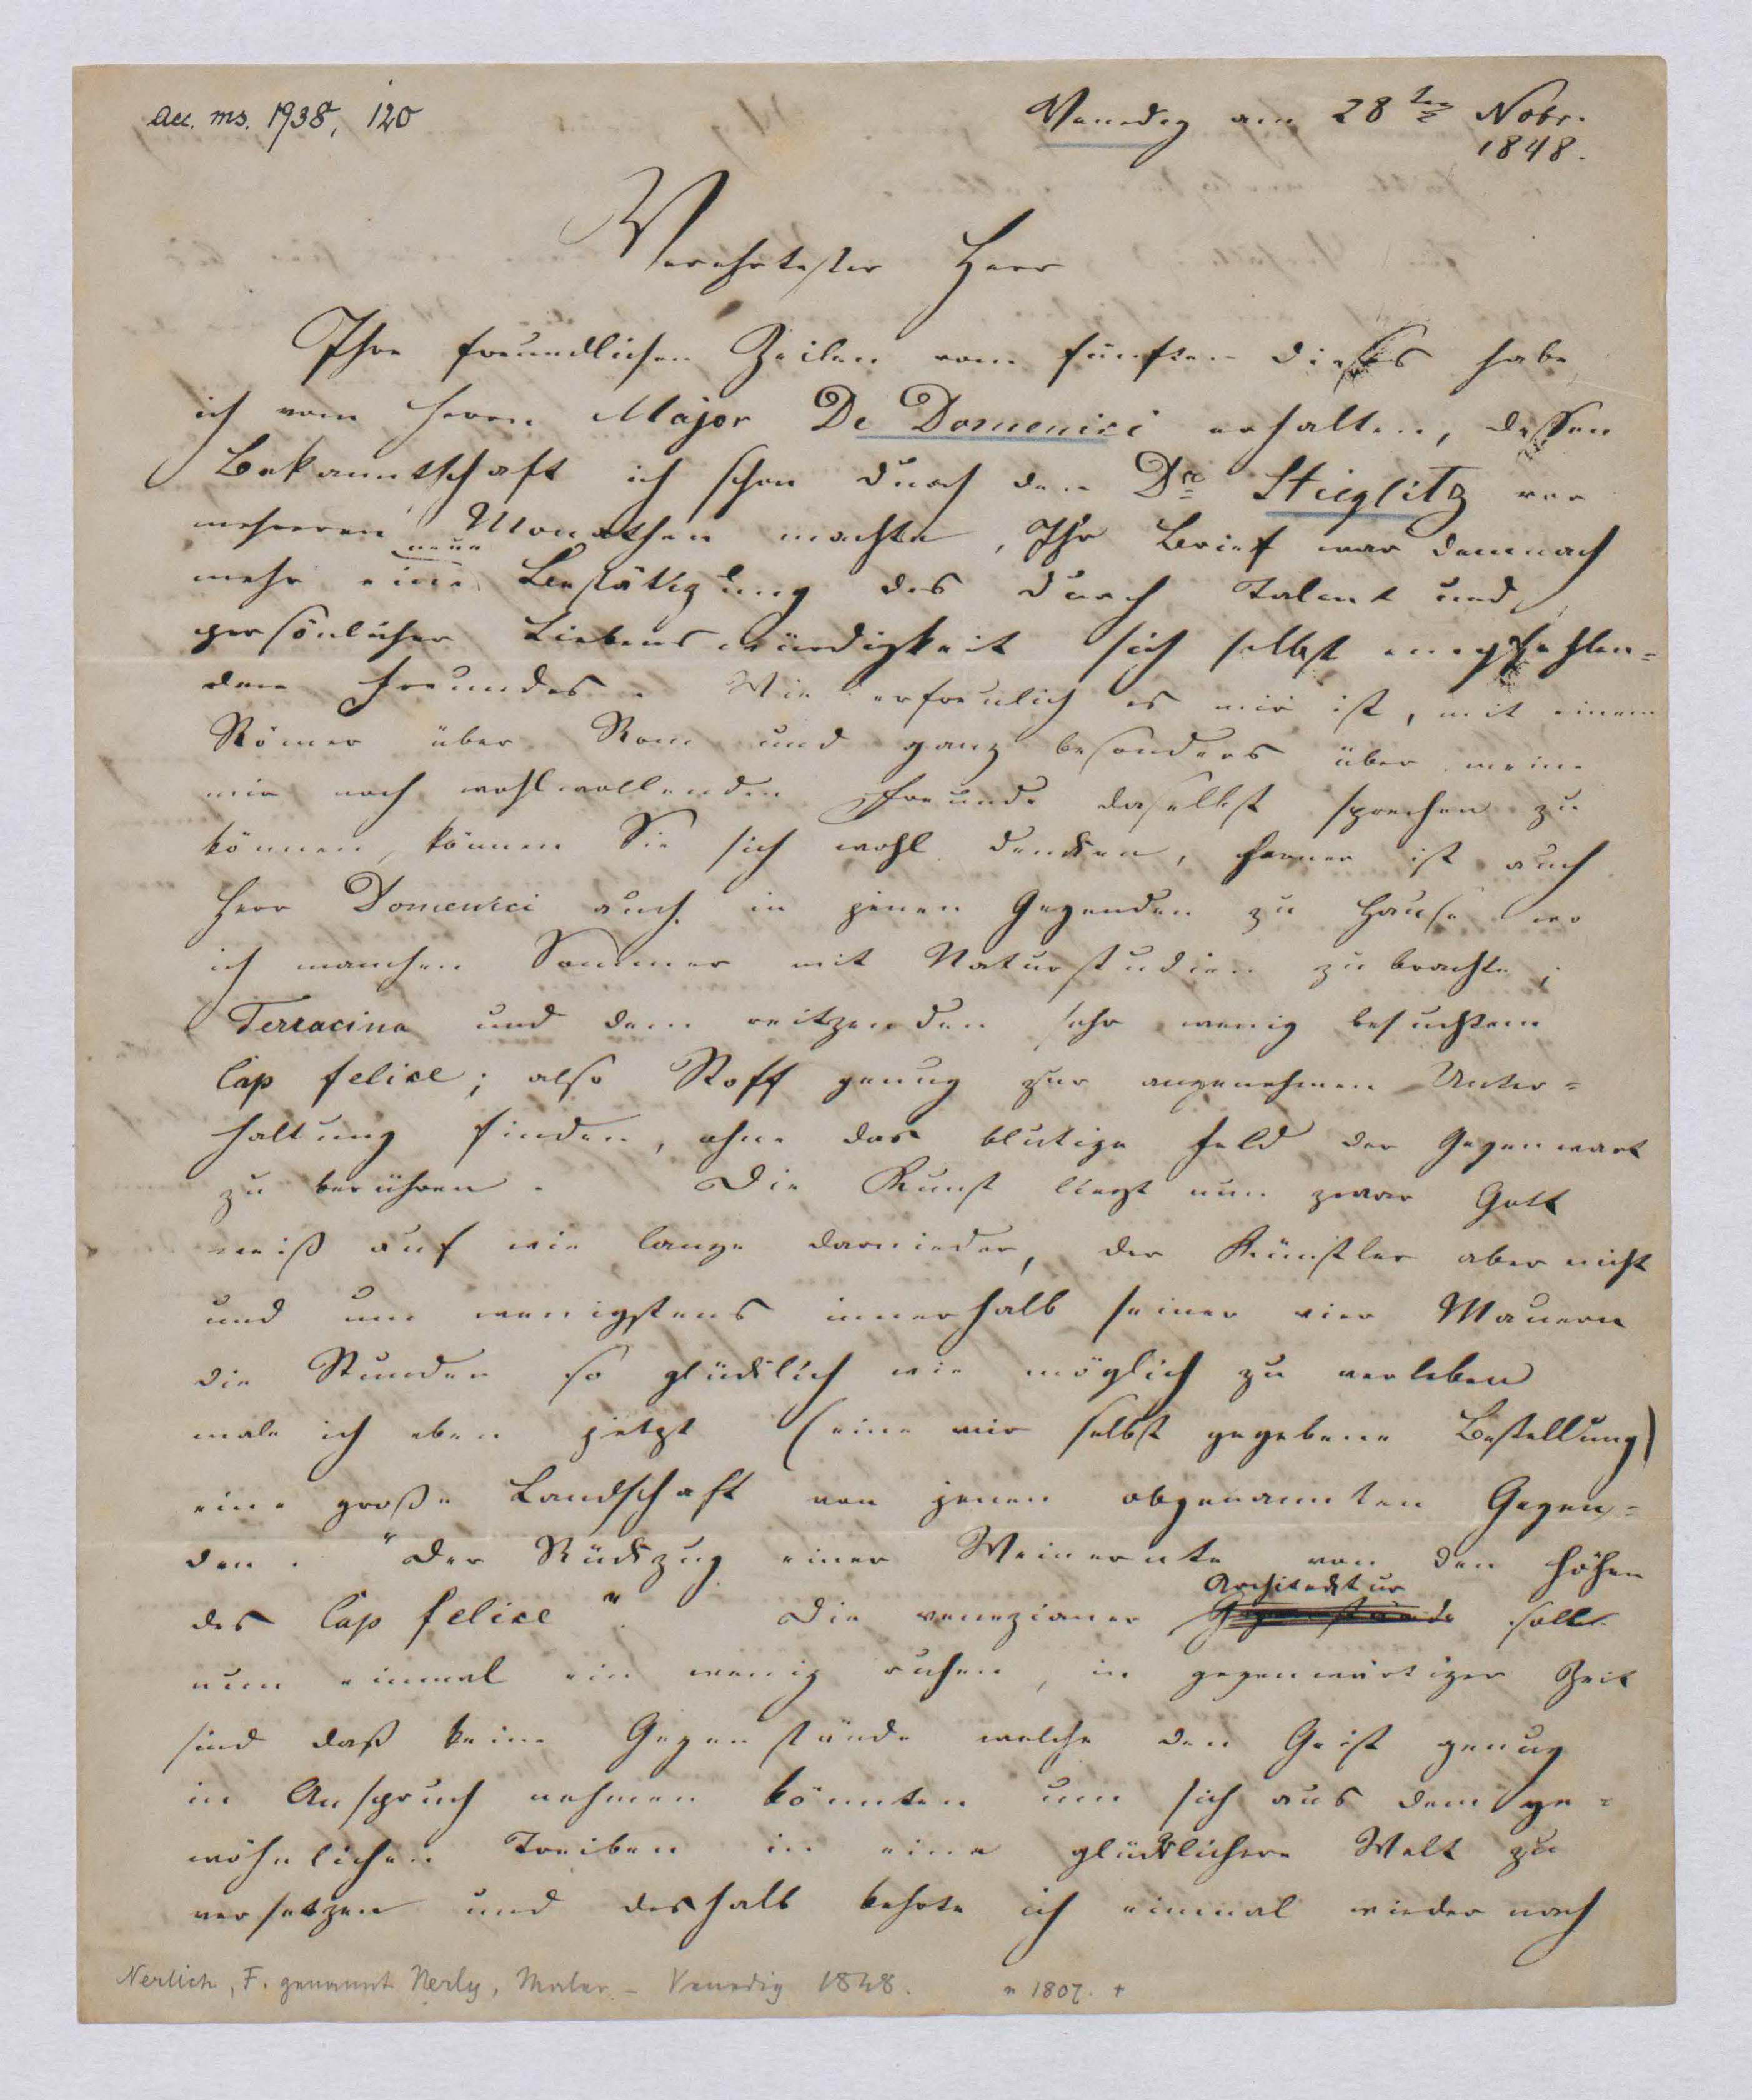 acc. ms. 1938, 120
Venedig am 28ten Nobr.
1848.
Verehrtester Herr
Ihre freundlichen Zeilen vom fünften dieses habe
ich vom Herrn Major De Domenici erhalten, dessen
Bekanntschaft ich schon durch den Dr. Stieglitz vor
mehreren Monathen machte, Ihr Brief war demnach
neue
mehr eine Bestätigung des durch Talent und
persönlicher Liebenswürdigkeit sich selbst empfehlen=
den Freundes. Wie erfreulich es mir ist, mit einem
Römer über Rom und ganz besonders über meine
mir noch wohlwollenden Freunde daselbst sprechen zu
können, können Sie sich wohl dencken, ferner ist auch
Herr Domenici auch in jenen Gegenden zu Hause wo
ich manchen Sommer mit Naturstudien zubrachte;
Terracina und dem reitzenden sehr wenig besuchtem
Cap felice; also Stoff genug zur angenehmen Unter=
haltung finden, ohne das blutige Feld der Gegenwart
zu berühren. Die Kunst liegt nun zwar Gott
weiß auf wie lange darnieder, der Künstler aber nicht
und um wenigstens innerhalb seiner vier Mauern
die Stunden so glücklich wie möglich zu verleben
male ich eben jetzt (eine mir selbst gegebene Bestellung)
eine große Landschaft von jenen obgenannten Gegen=
den. "Der Rückzug einer Weinernte von den Höhen
Architecktur
des Cap felice" Die venezianer Gegenstände soll
nun einmal ein wenig ruhen, in gegenwärtiger Zeit
sind daß keine Gegenstände welche den Geist genug
in Anspruch nehmen könnten um sich aus dem ge=
wöhnlichen Treiben in eine glücklichere Welt zu
versetzen und deshalb kehrte ich einmal wieder nach
Nerlich, F. genannt Nerly, Maler – Venedig 1848. * 1807. +